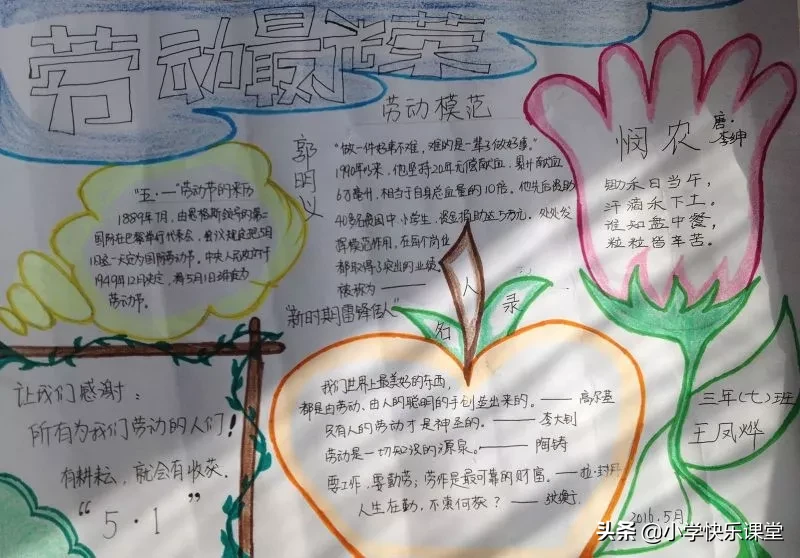 劳动最光荣
"五·一"劳动节的来历
1889年7月,由恩格斯领导的第二
国际在巴黎举行代表会,会议规定把5月
1日这一天定为国际劳动节。中央人民政府于
1949年12月决定,将5月1日确定为
劳动节。
劳动模范
郭明义
"做一件好事不难,难的是一辈子做好事。"
1990年以来,他坚持20年无偿献血,累计献血
6万毫升,相当于自身总血量的10倍。他先后资助
40多名贫困中小学生,资金捐助达5万元。处处发
挥模范作用,在每个岗位
都取得了突出的业绩。
被称为——
"新时期雷锋传人"
悯农
唐·李绅
锄禾日当午,
汗滴禾下土。
谁知盘中餐,
粒粒皆辛苦。
让我们感谢:
所有为我们劳动的人们!
有耕耘,就会有收获.
"5·1"
名人录
我们世界上最美好的东西,
都是由劳动、由人的聪明的手创造出来的。——高尔基
只有人的劳动才是神圣的。——李大钊
劳动是一切知识的源泉。——陶铸
要工作,要勤劳;劳作是最可靠的财富。——拉·封丹
人生在勤,不索何获?——张衡
三年(七)班
王凤烨
2016.5月
头条@小学快乐课堂